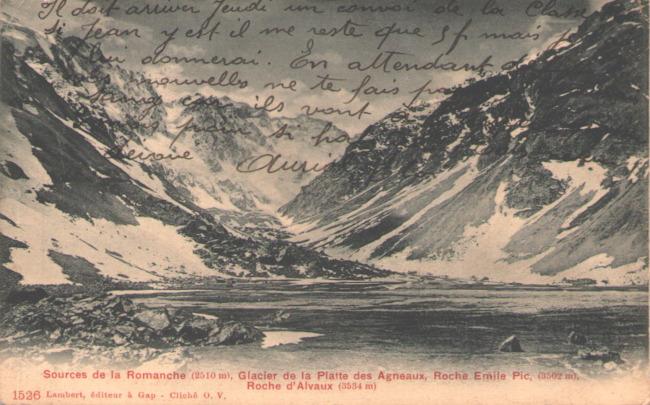 Il doit arriver Jeudi un convoi de la Classe
Si Jean y est il me reste que 5f mais je
lui donnerai. En attendant de
nouvelles ne te fais pas
car ils vont
Sources de la Romanche (2510 m), Glacier de la Platte des Agneaux, Roche Emile Pic, (3502 m),
Roche d'Alvaux (3534 m)
1526 Lambert, éditeur à Gap - Cliché O. V.